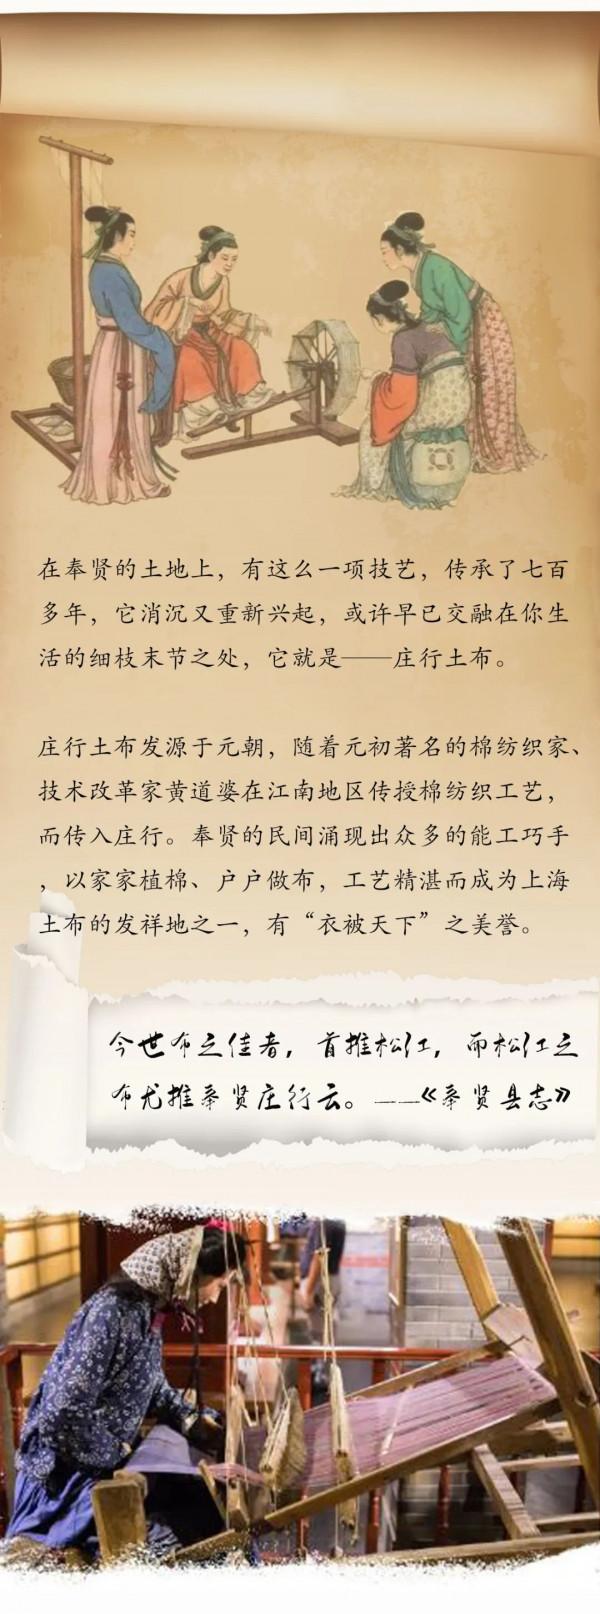 在奉贤的土地上，有这么一项技艺，传承了七百
多年，它消沉又重新兴起，或许早已交融在你生
活的细枝末节之处，它就是——庄行土布。
庄行土布发源于元朝，随着元初著名的棉纺织家、
技术改革家黄道婆在江南地区传授棉纺织工艺，
而传入庄行。奉贤的民间涌现出众多的能工巧手
，以家家植棉、户户做布，工艺精湛而成为上海
土布的发祥地之一，有“衣被天下”之美誉。
今世布之佳者，首推松江，而松江之
布尤推奉贤庄行云。——《奉贤县志》